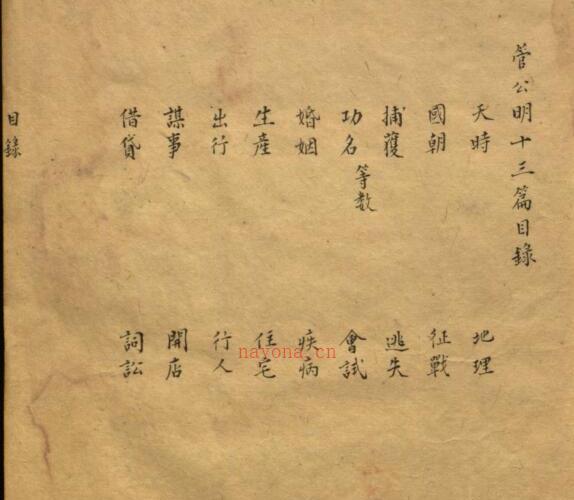 管公明十三篇目錄
天時 地理
國朝 征戰
捕獲 逃失
功名等数 會試
婚姻 疾病
生產 住宅
出行 行人
謀事 開店
借貸 詞訟
目錄
nayona.cn